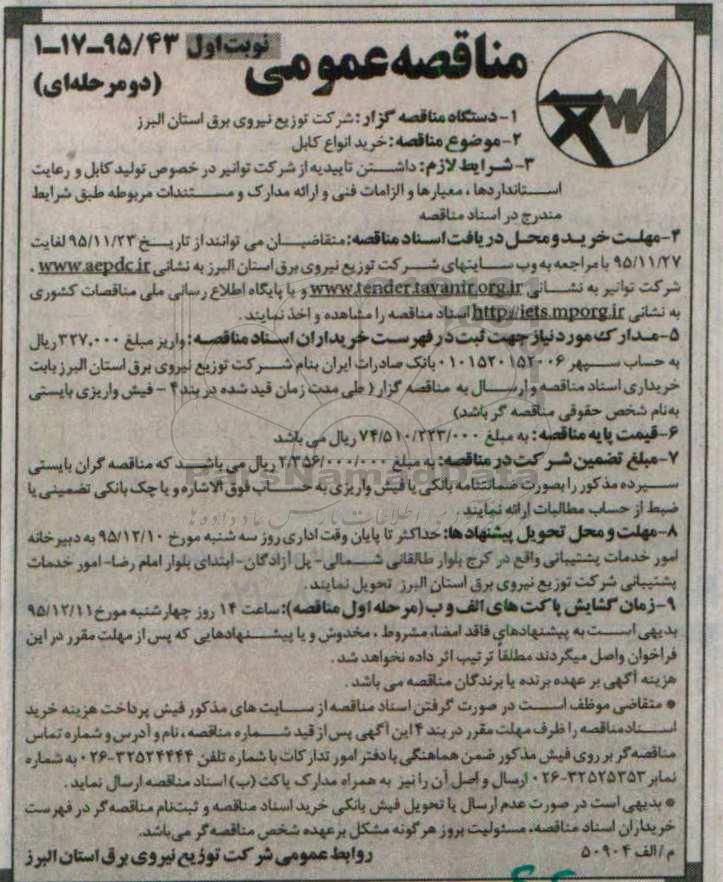 مناقصه عمومی
نوبت اول ۱-۱۷-۹۵/۴۳
(دو مرحله‌ای)
۱- دستگاه مناقصه گزار: شرکت توزیع نیروی برق استان البرز
۲- موضوع مناقصه: خرید انواع کابل
۳- شرایط لازم: داشتن تاییدیه از شرکت توانیر در خصوص تولید کابل و رعایت
استانداردها، معیارها و الزامات فنی و ارائه مدارک و مستندات مربوطه طبق شرایط
مندرج در اسناد مناقصه
۴- مهلت خرید و محل دریافت اسناد مناقصه: متقاضیان می توانند از تاریخ ۹۵/۱۱/۲۳ لغایت
۹۵/۱۱/۲۷ با مراجعه به وب سایتهای شرکت توزیع نیروی برق استان البرز به نشانی www.aepdc.ir ،
شرکت توانیر به نشانی www.tender.tavanir.org.ir و یا پایگاه اطلاع رسانی ملی مناقصات کشوری
به نشانی http://iets.mporg.ir اسناد مناقصه را مشاهده و اخذ نمایند.
۵- مدارک مورد نیاز جهت ثبت در فهرست خریداران اسناد مناقصه: واریز مبلغ ۳۲۷,۰۰۰ ریال
به حساب سپهر ۰۱۰۱۵۲۰۱۵۲۰۰۶ بانک صادرات ایران بنام شرکت توزیع نیروی برق استان البرز بابت
خریداری اسناد مناقصه و ارسال به مناقصه گزار (طی مدت زمان قید شده در بند ۴ - فیش واریزی بایستی
به نام شخص حقوقی مناقصه گر باشد)
۶- قیمت پایه مناقصه: به مبلغ ۷۴/۵۱۰/۲۲۳/۰۰۰ ریال می باشد
۷- مبلغ تضمین شرکت در مناقصه: به مبلغ ۲/۳۵۶/۰۰۰/۰۰۰ ریال می باشد که مناقصه گران بایستی
سپرده مذکور را بصورت ضمانتنامه بانکی یا فیش واریزی به حساب فوق الاشاره و یا چک بانکی تضمینی یا
ضبط از حساب مطالبات ارائه نمایند
۸- مهلت و محل تحویل پیشنهادها: حداکثر تا پایان وقت اداری روز سه شنبه مورخ ۹۵/۱۲/۱۰ به دبیرخانه
امور خدمات پشتیبانی واقع در کرج بلوار طالقانی شمالی- پل آزادگان- ابتدای بلوار امام رضا- امور خدمات
پشتیبانی شرکت توزیع نیروی برق استان البرز تحویل نمایند.
۹- زمان گشایش پاکت های الف و ب (مرحله اول مناقصه): ساعت ۱۴ روز چهارشنبه مورخ ۹۵/۱۲/۱۱
بدیهی است به پیشنهادهای فاقد امضا، مشروط، مخدوش و یا پیشنهادهایی که پس از مهلت مقرر در این
فراخوان واصل میگردند مطلقاً ترتیب اثر داده نخواهد شد.
هزینه آگهی بر عهده برنده یا برندگان مناقصه می باشد.
* متقاضی موظف است در صورت گرفتن اسناد مناقصه از سایت های مذکور فیش پرداخت هزینه خرید
اسناد مناقصه را ظرف مهلت مقرر در بند ۴ این آگهی پس از قید شماره مناقصه، نام و آدرس و شماره تماس
مناقصه گر بر روی فیش مذکور ضمن هماهنگی با دفتر امور تدارکات با شماره تلفن ۳۲۵۲۴۴۴۴-۰۲۶ به شماره
نمابر ۳۲۵۲۵۳۵۳-۰۲۶ ارسال و اصل آن را نیز به همراه مدارک پاکت (ب) اسناد مناقصه ارسال نماید.
* بدیهی است در صورت عدم ارسال یا تحویل فیش بانکی خرید اسناد مناقصه و ثبت‌نام مناقصه گر در فهرست
خریداران اسناد مناقصه، مسئولیت بروز هرگونه مشکل بر عهده شخص مناقصه گر می‌باشد.
م/الف ۵۰۹۰۴
روابط عمومی شرکت توزیع نیروی برق استان البرز